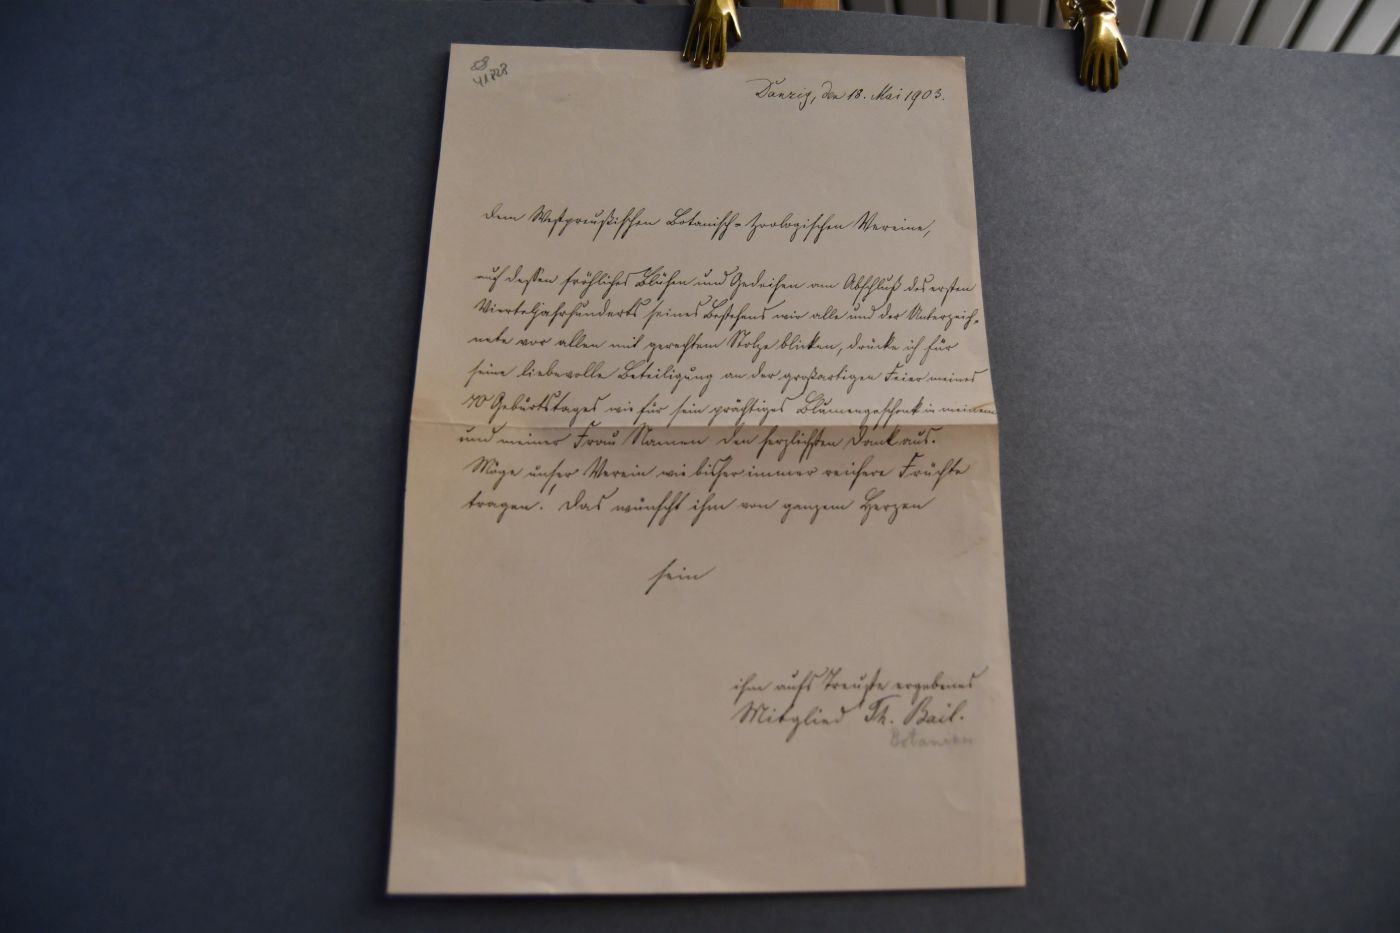 41828
Danzig, den 18. Mai 1903.
Dem Westpreußischen Botanisch-Zoologischen Vereine,
auf dessen fröhliches Blühen und Gedeihen am Abschluß des ersten
Vierteljahrhunderts seines Bestehens wir alle und der Unterzeich-
nete vor allen mit gerechtem Stolze blicken, drücke ich für
seine liebevolle Beteiligung an der großartigen Feier meines
70 Geburtstages wie für sein prächtiges Blumengeschenk in meinem
und meiner Frau Namen den herzlichsten Dank aus.
Möge unser Verein wie bisher immer reichere Früchte
tragen! Das wünscht ihm von ganzem Herzen
sein
ihm aufs Treuste ergebenes
Mitglied Th. Bail.
Botaniker